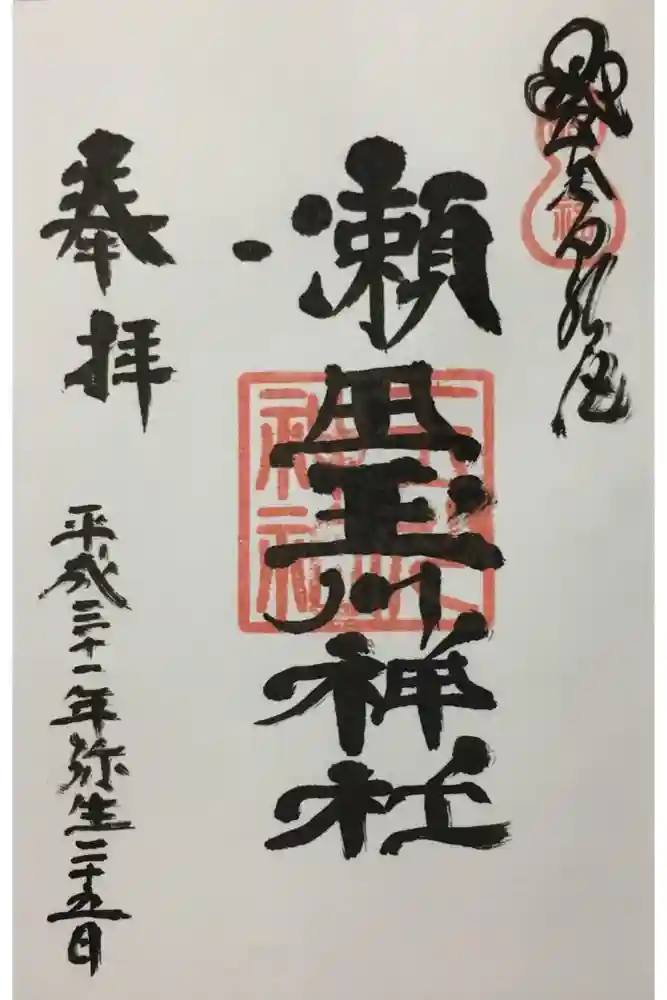 瀬田玉川神社
奉拝
平成三十一年弥生二十五日